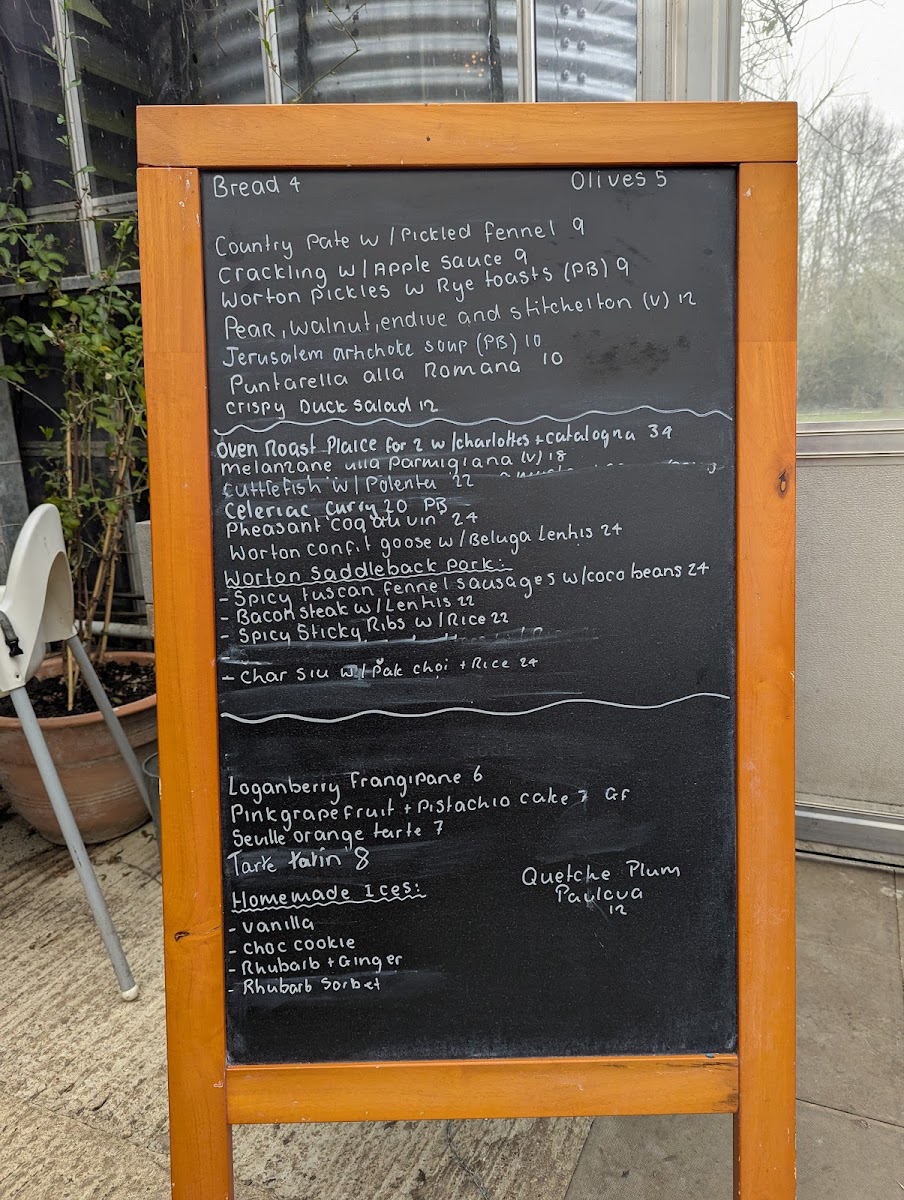 Bread 4 Olives 5
Country Pate w/Pickled fennel 9
Crackling w/Apple sauce 9
Worton Pickles w Rye toasts (PB) 9
Pear, walnut, endive and stitchelton (V) 12
Jerusalem artichote soup (PB) 10
Puntarella alla Romana 10
Crispy Duck salad 12
Oven Roast Plaice for 2 w/charlottes + catalogna 34
Melanzane alla Parmigiana (V) 18
Cuttlefish w/Polenta 22
Celeriac Curry 20 PB
Pheasant Coq au vin 24
Worton Confit goose w/Beluga Lentils 24
Worton Saddleback Pork:
- Spicy Tuscan fennel sausages w/coco beans 24
- Bacon steak w/Lentils 22
- Spicy Sticky Ribs w/Rice 22
- Char siu w/Pak choi + Rice 24
Loganberry Frangipane 6
Pink grapefruit + Pistachio cake 7 GF
Seville orange tarte 7
Tarte tatin 8
Quetche Plum
Pavlova
12
Homemade Ices:
- Vanilla
- Choc cookie
- Rhubarb + Ginger
- Rhubarb Sorbet